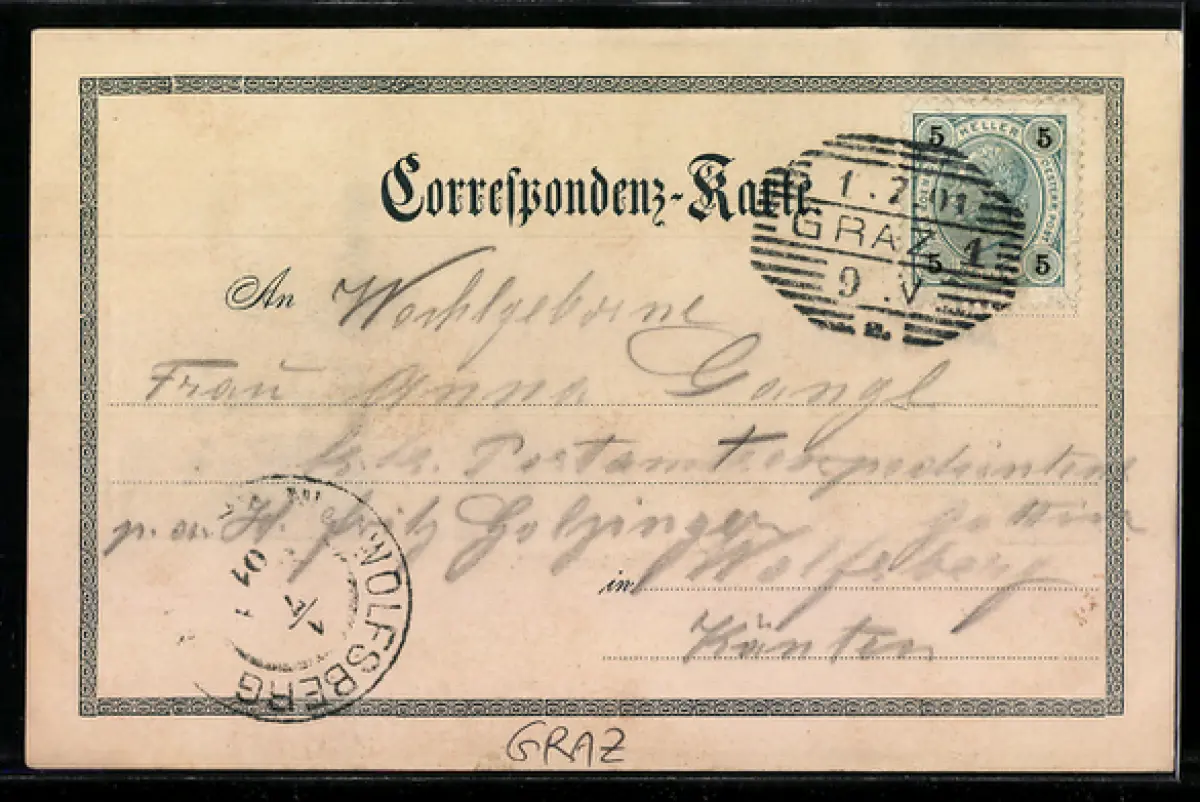 Correspondenz-Karte
5 HELLER 5
1.7.01
GRAZ 1
9.V
5 5
An Wohlgeborne
Frau Anna Gangl
k. k. Postamtsexpedientens
p. a. H. Fritz Holzinger Gattin
in Wolfsberg
Känten
WOLFSBERG
1/7 01
GRAZ